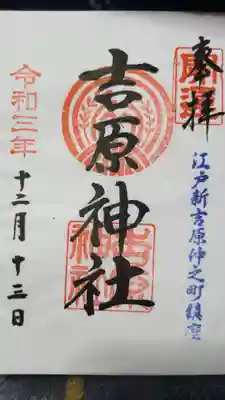 奉拝
江戸新吉原仲之町鎮座
吉原神社
令和三年
十二月十三日